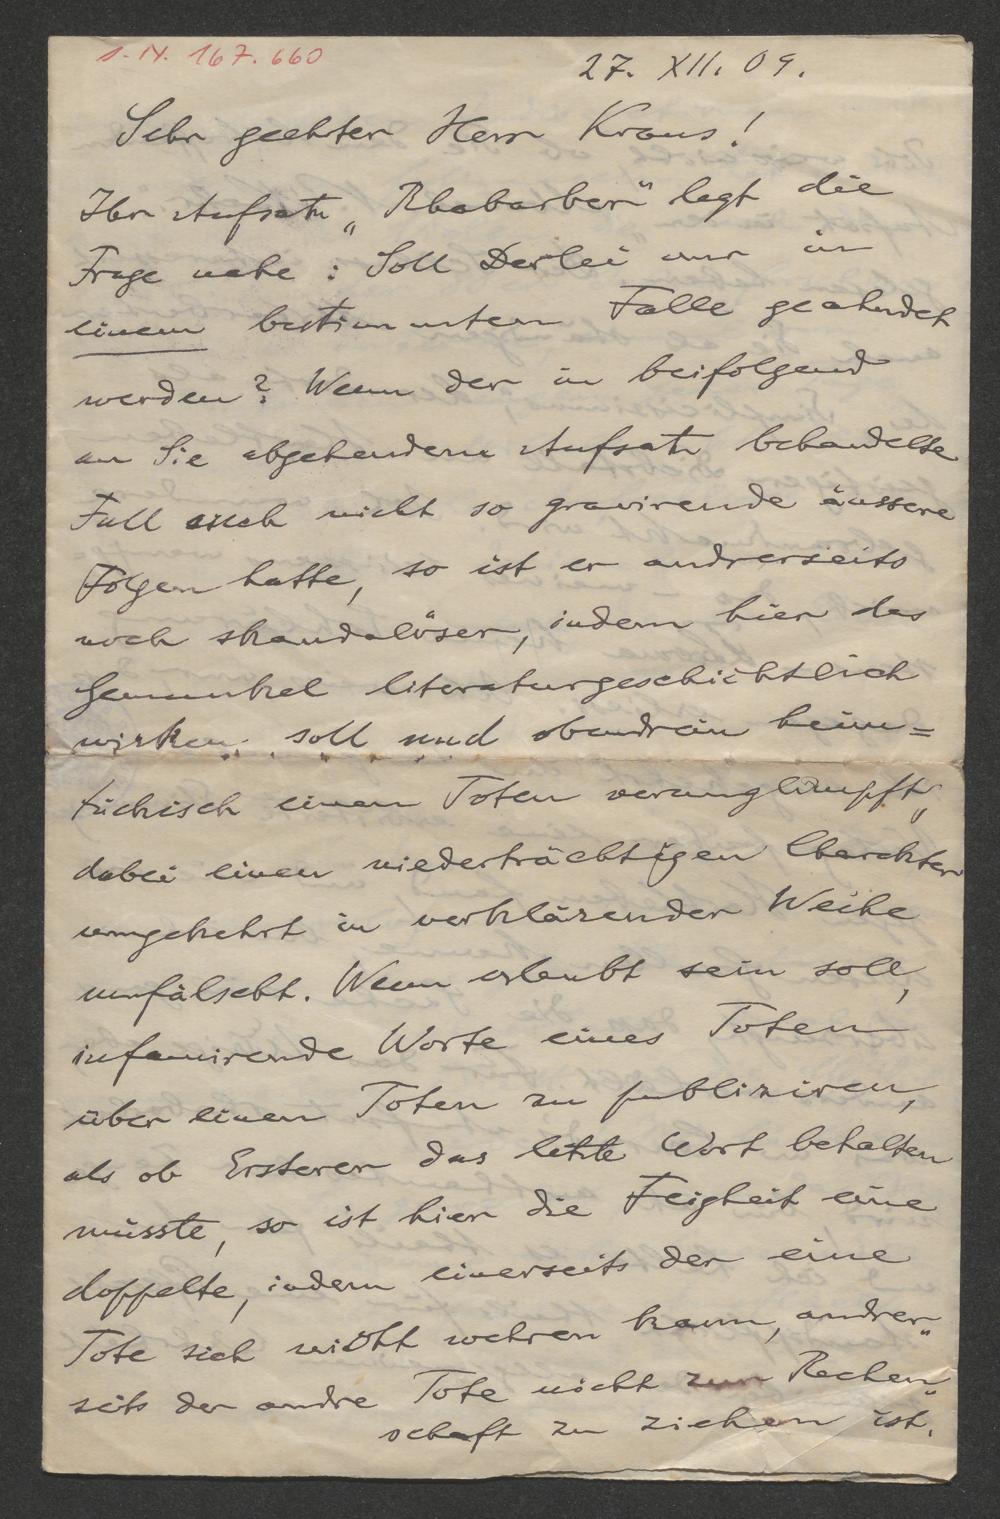 I. N. 167.660
27. XII. 09.
Sehr geehrter Herr Kraus!
Ihr Aufsatz „Rhabarber" legt die
Frage nahe: Soll Derlei nur in
einem bestimmten Falle geahndet
werden? Wenn der in beifolgend
an Sie abgehendem Aufsatz behandelte
Fall auch nicht so gravirende äussere
Folgen hatte, so ist er andrerseits
noch skandalöser, indem hier das
Gemunkel literaturgeschichtlich
wirken soll und obendrein heim=
tückisch einen Toten verunglimpft,
dabei einen niederträchtigen Charakter
umgekehrt in verklärender Weihe
umfälscht. Wenn erlaubt sein soll,
infamirende Worte eines Toten
über einen Toten zu publiziren,
als ob Ersterer das letzte Wort behalten
müsste, so ist hier die Feigheit eine
doppelte, indem einerseits der eine
Tote sich nicht wehren kann, andrer„
seits der andre Tote nicht zur Rechen„
schaft zu ziehen ist.